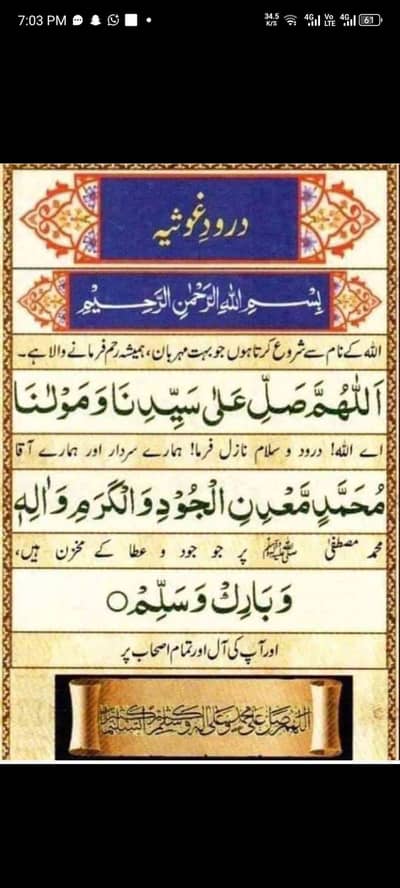 7:03 PM
34.5 K/S 4G Vo LTE 4G 61
درودِ غوثیہ
بِسْمِ اللهِ الرَّحْمٰنِ الرَّحِيْمِ
اللہ کے نام سے شروع کرتا ہوں جو بہت مہربان، ہمیشہ رحم فرمانے والا ہے۔
اَللّٰهُمَّ صَلِّ عَلٰى سَيِّدِنَا وَمَوْلٰنَا
اے اللہ! درود و سلام نازل فرما! ہمارے سردار اور ہمارے آقا
مُحَمَّدٍ مَّعْدِنِ الْجُوْدِ وَالْكَرَمِ وَاٰلِهٖ
محمد مصطفیٰ ﷺ پر جو جود و عطا کے مخزن ہیں،
وَبَارِكْ وَسَلِّمْ ○
اور آپ کی آل اور تمام اصحاب پر